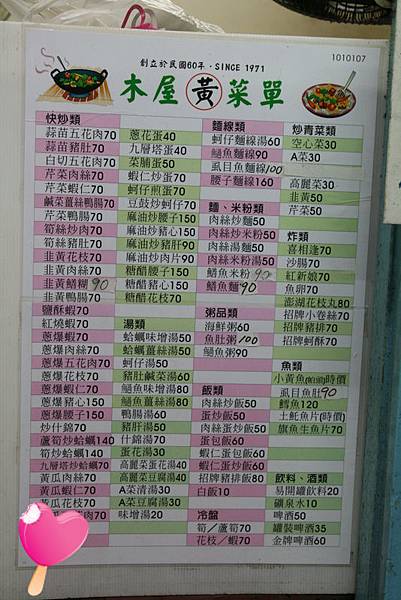 創立於民國60年 · SINCE 1971
1010107
木屋黃菜單
快炒類
蒜苗五花肉70
蒜苗豬肚70
白切五花肉70
芹菜肉絲70
芹菜蝦仁70
鹹菜薑絲鴨腸70
芹菜鴨腸70
筍絲炒肉70
筍絲豬肚70
韭黃花枝70
韭黃肉絲70
韭黃鱔糊90
韭黃鴨腸70
鹽酥蝦70
紅燒蝦70
蔥爆蝦70
蔥爆肉絲70
蔥爆五花肉70
蔥爆花枝70
蔥爆蝦仁70
蔥爆豬心150
蔥爆腰子150
炒什錦70
蘆筍炒蛤蠣140
筍炒蛤蠣140
九層塔炒蛤蠣70
黃瓜肉絲70
黃瓜蝦仁70
黃瓜花枝70
肉70
蔥花蛋40
九層塔蛋40
菜脯蛋50
蝦仁炒蛋70
蚵仔煎蛋70
豆鼓炒蚵仔70
麻油炒腰子150
麻油炒豬心150
麻油炒豬肝90
麻油炒肉片90
糖醋腰子150
糖醋豬心150
糖醋花枝70
湯類
蛤蠣味增湯50
蛤蠣薑絲湯50
蚵仔湯50
豬肚鹹菜湯60
鯢魚味增湯80
鯢魚薑絲湯80
鴨腸湯60
豬肝湯50
什錦湯70
蛋花湯30
高麗菜蛋花湯40
高麗菜豆腐湯40
A菜清湯30
A菜豆腐湯30
味增湯20
麵線類
蚵仔麵線湯60
鯢魚麵線90
虱目魚麵線100
腰子麵線160
麵、米粉類
肉絲炒麵50
肉絲炒米粉50
肉絲湯麵50
肉絲米粉湯50
鱔魚米粉90
鱔魚麵90
粥品類
海鮮粥60
魚肚粥100
鯢魚粥90
飯類
肉絲炒飯50
蛋炒飯50
肉絲蛋炒飯50
蛋包飯60
蝦仁蛋包飯60
蝦仁蛋炒飯60
招牌豬排飯80
白飯10
冷盤
筍／蘆筍70
花枝／蝦70
炒青菜類
空心菜30
A菜30
高麗菜30
韭黃50
芹菜50
炸類
喜相逢70
沙腸70
紅新娘70
魚卵70
澎湖花枝丸80
招牌小卷絲70
招牌豬排70
招牌蚵酥70
魚類
虱目魚肚90
鱈魚120
土魠魚片(時價)
旗魚生魚片70
飲料、酒類
易開罐飲料20
礦泉水10
啤酒50
罐裝啤酒35
金牌啤酒60